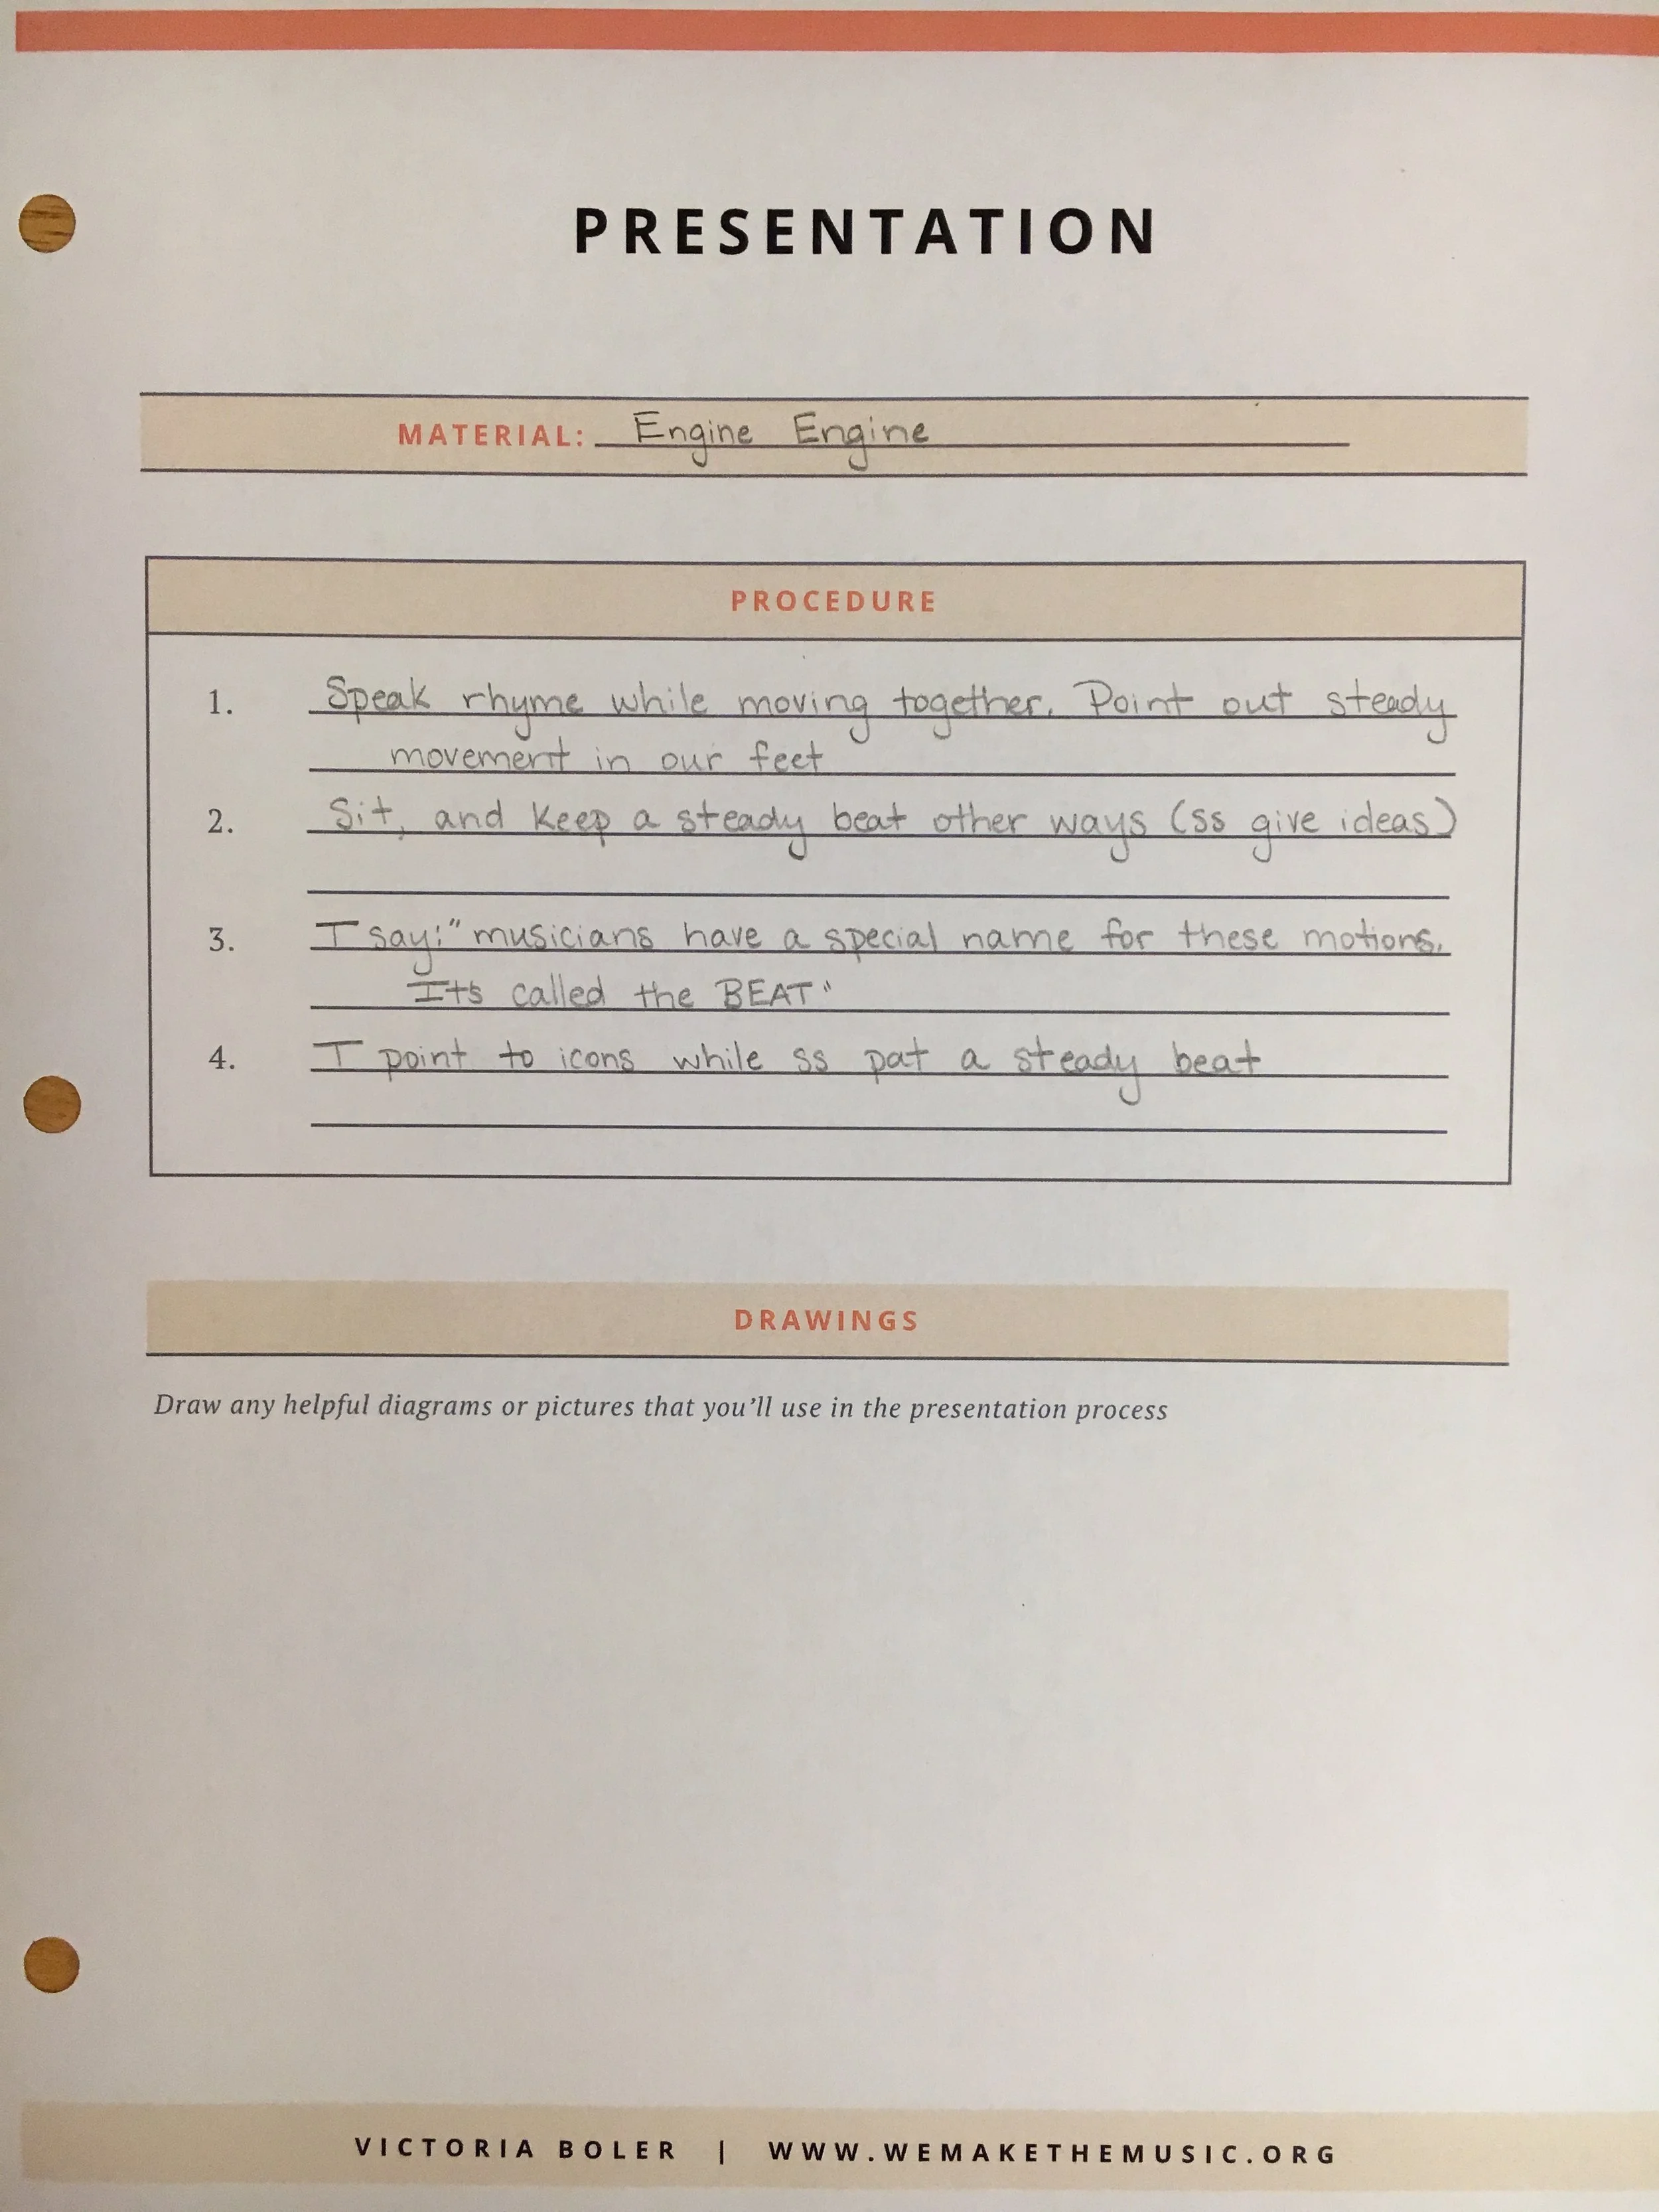 PRESENTATION
MATERIAL: Engine Engine
PROCEDURE
1. Speak rhyme while moving together. Point out steady
movement in our feet
2. Sit, and keep a steady beat other ways (ss give ideas)
3. I say: "musicians have a special name for these motions.
Its called the BEAT"
4. I point to icons while ss pat a steady beat
DRAWINGS
Draw any helpful diagrams or pictures that you'll use in the presentation process
VICTORIA BOLER | WWW.WEMAKETHEMUSIC.ORG